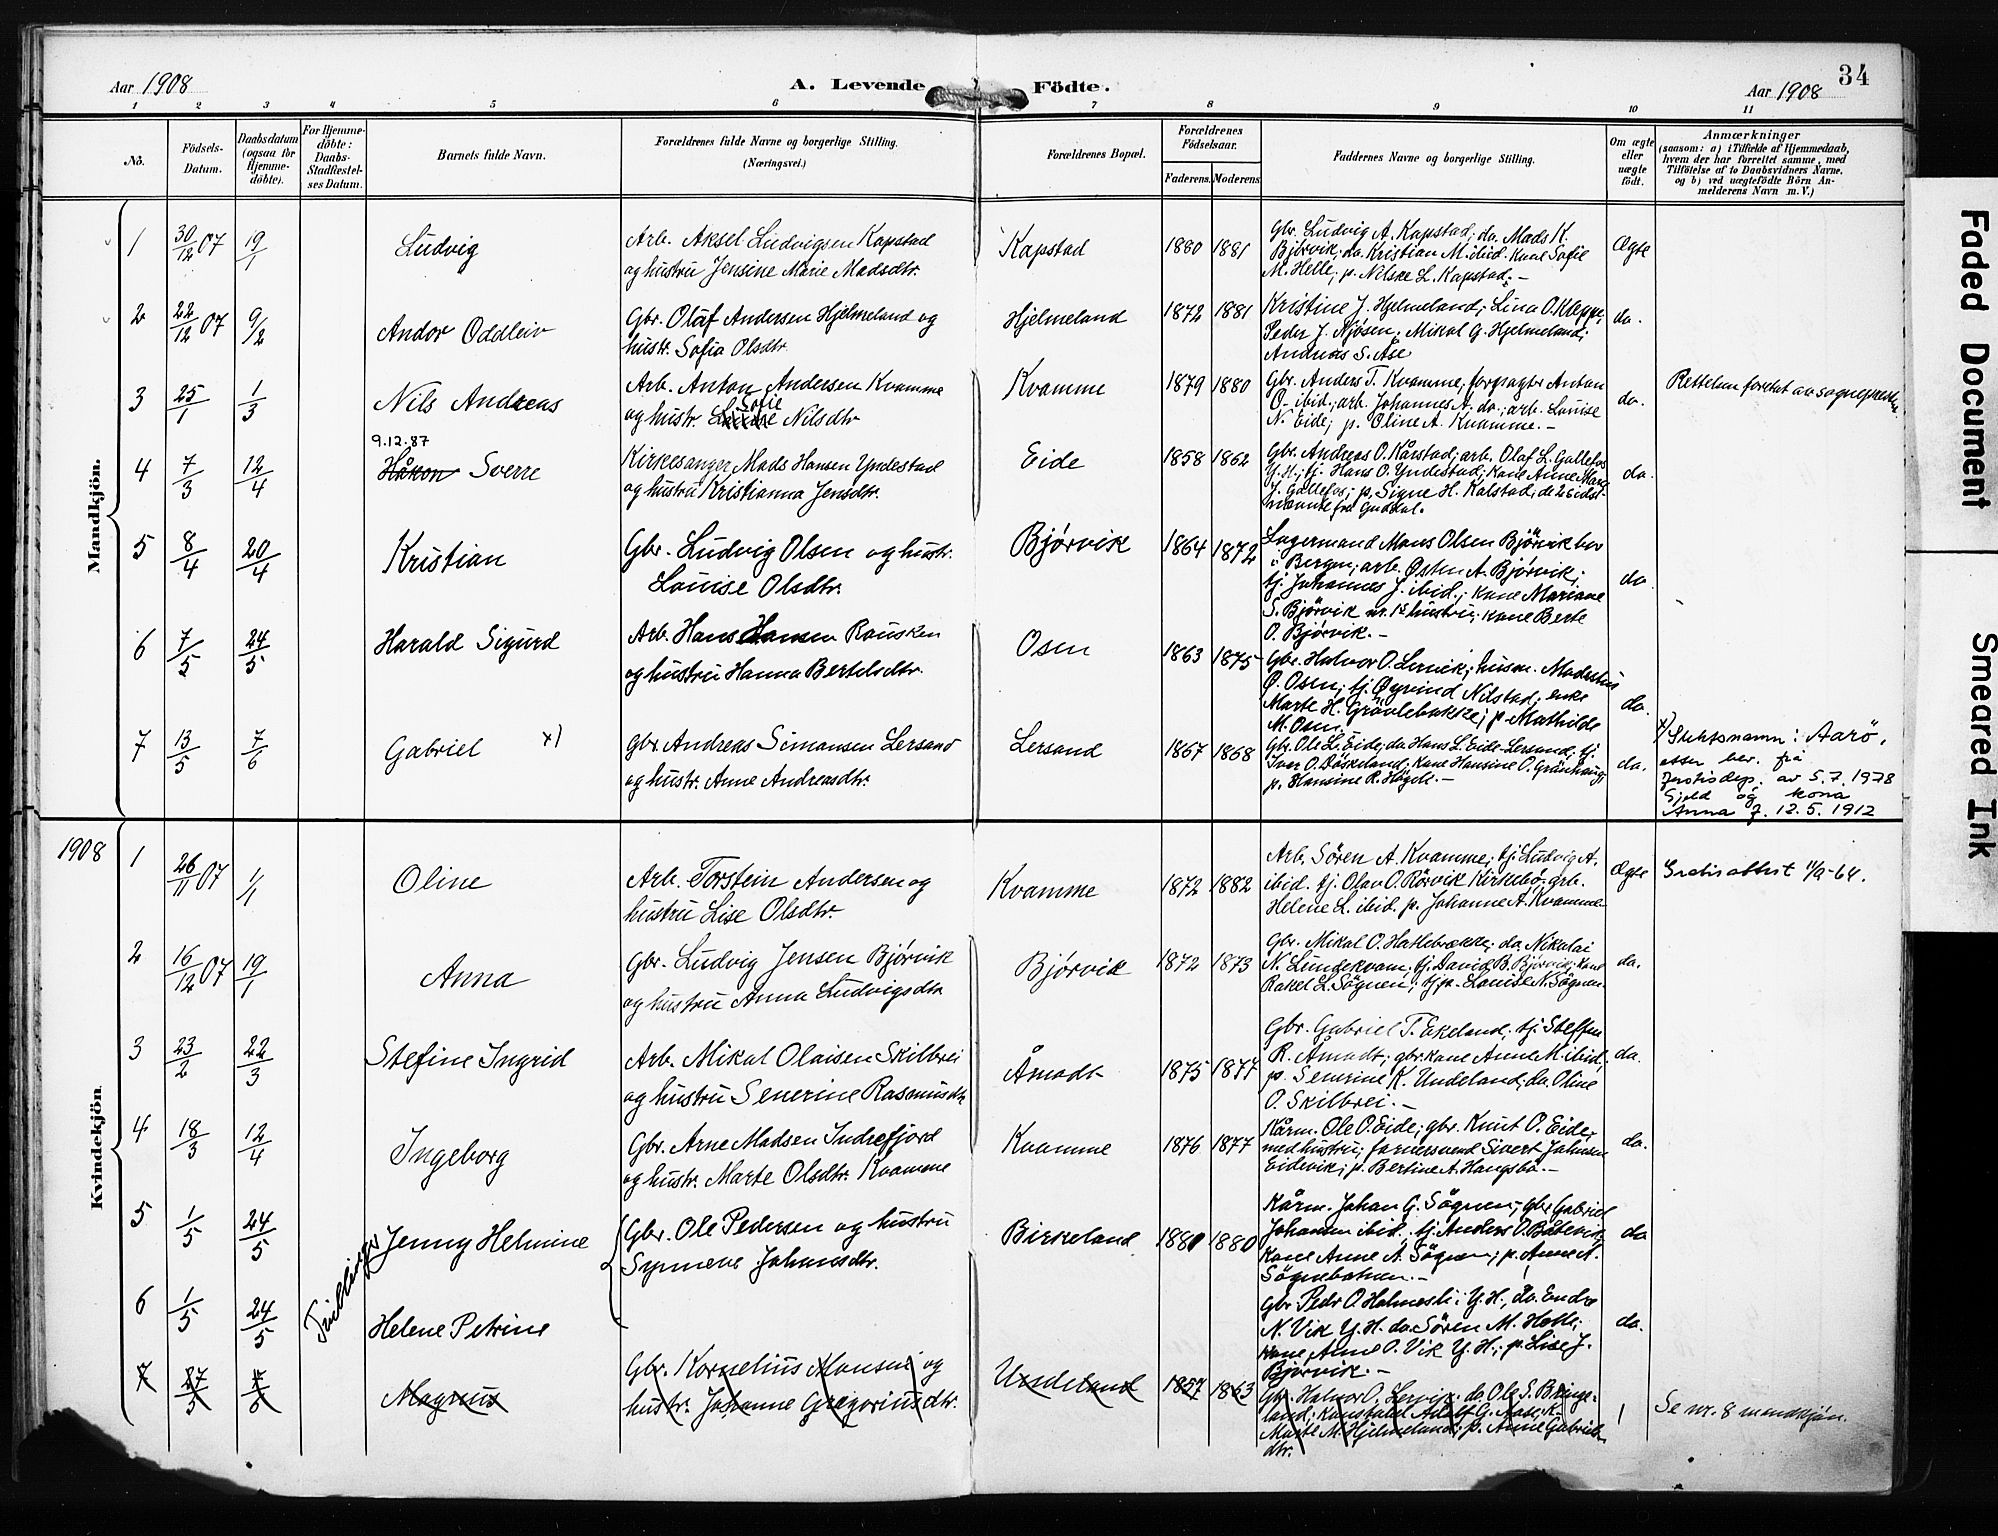 34
Aar 1908
A. Levende Födte.
Aar 1908
1 2 3 4 5 6 7 8 9 10 11
No.
Födsels-
Datum.
Daabsdatum
(ogsaa for
Hjemme-
döbte).
For Hjemme-
döbte:
Daabs-
Stadfæstel-
ses Datum.
Barnets fulde Navn.
Forældrenes fulde Navne og borgerlige Stilling.
(Næringsvei.)
Forældrenes Bopæl.
Forældrenes
Födselsaar.
Faderens. Moderens.
Faddernes Navne og borgerlige Stilling.
Om ægte
eller
uægte
födt.
Anmærkninger
(saasom: a) i Tilfælde af Hjemmedaab,
hvem der har forrettet samme, med
Tilföielse af to Daabsvidners Navne,
og b) ved uægtefödte Börn An-
melderens Navn m. V.)
Mandkjön.
1 30/12 07 19/1 Ludvig
Arb. Aksel Ludvigsen Kapstad
og hustru Jensine Marie Madsdtr.
Kapstad 1880 1881
Gbr. Ludvig A. Kapstad; do. Mads K.
Bjørvik; do. Kristian M. ibid. Kone Sofie
M. Helle; p. Nilske L. Kapstad. –
Ægte
2 22/12 07 9/2 Andor Oddleiv
Gbr. Olaf Andersen Hjelmeland og
hustr. Sofia Olsdtr.
Hjelmeland 1872 1881
Kristine J. Hjelmeland; Lina O. Kleppe;
Peder J. Njøsen; Mikal G. Hjelmeland;
Andreas S. Åse
do.
3 25/1 1/3 Nils Andreas
Arb. Anton Andersen Kvamme
og hustr. Sofie Nilsdtr
Kvamme 1879 1880
Gbr. Anders T. Kvamme; forpagter Anton
O. ibid.; arb. Johannes A. do.; arb. Louise
N. Eide; p. Oline A. Kvamme. –
do.
Rettelsen foretat av sognepresten
9.12.87
4 7/3 12/4 Håkon Sverre
Kirkesanger Mads Hansen Yndestad
og hustru Kristianna Jensdtr.
Eide 1858 1862
Gbr. Andreas O. Kårstad; arb. Olaf L. Gallefos
Y. H.; tj. Hans O. Yndestad; Kone Anne Marie
J. Gallefos; p. Signe H. Kalstad; de 2 sidst-
nævnte fra Guddal.
do.
5 8/4 20/4 Kristian
Gbr. Ludvig Olsen og hustr.
Louise Olsdtr.
Bjørvik 1864 1872
Lagermand Mons Olsen Björvik bor
i Bergen; arb. Østen A. Bjørvik;
tj. Johannes J. ibid.; Kone Mariane
S. Bjørvik nr. 1s hustru; Kone Berte
O. Bjørvik. –
do.
6 7/5 24/5 Harald Sigurd
Arb. Hans Hansen Rousken
og hustru Hanna Bertelsdtr.
Osen 1863 1875
Gbr. Halvor O. Lervik; husm. Modestus
Ø. Osen; tj. Øyvind Nilstad; enke
Marte H. Grövlebakke; p. Mathilde
M. Osen
do.
7 13/5 7/6 Gabriel x)
Gbr Andreas Simonsen Lersand
og hustr. Anne Andreasdtr.
Lersand 1867 1868
Gbr. Ole L. Eide; do. Hans L. Eide Lersand; tj.
Ivar O. Döskeland; Kone Hansine O. Grönhaug;
p. Hansine R. Högde. –
do.
x) Slektsnamn: Aarö,
etter bev. frå
Justisdep. av 5.7.1978
Gjeld og kona
Anna f. 12.5.1912
1908
Kvindekjön
1 26/11 07 1/1 Oline
Arb. Torstein Andersen og
hustru Lise Olsdtr.
Kvamme 1872 1882
Arb. Sören A. Kvamme; tj. Ludvig A.
ibid. tj. Olav O. Rörvik Kirkebö; arb.
Helene L. ibid. p. Johanne A. Kvamme
Ægte
Gratisattest 11/9-64.
2 16/12 07 19/1 Anna
Gbr. Ludvig Jensen Bjørvik
og hustru Anna Ludvigsdtr
Bjørvik 1872 1873
Gbr. Mikal O. Hatlebrekke; do. Nikolai
N. Lundekvam; tj. David B. Bjørvik; Kone
Rakel L. Sögnen; tj. p. Louise N. Sögnen
do.
3 23/2 22/3 Stefine Ingrid
Arb. Mikal Olaisen Skilbrei
og hustru Severine Rasmusdtr
Åmodt 1875 1877
Gbr. Gabriel T. Ekeland; tj. Steffen
R. Åmodt; gbr.kone Anne M. ibid.;
p. Severine K. Undeland; do. Oline
O. Skilbrei. –
do.
4 18/3 12/4 Ingeborg
Gbr. Arne Madsen Indrefjord
og hustr. Marte Olsdtr. Kvamme
Kvamme 1876 1877
Kårm. Ole P. Eide; gbr. Knut O. Eide
med hustru; farversvend Sivert Johnsen
Eidevik; p. Bertine A. Haugsbö. –
do.
Tvillinger
5 1/5 24/5 Jenny Helmine
Gbr. Ole Pedersen og hustru
Synneve Johannesdtr.
Birkeland 1880 1880
Kårm. Johan G. Sögnen; gbr Gabriel
Johansen ibid.; tj. Anders O. Båtevik;
Kone Anne A. Sögnen; p. Anne A.
Sögnebotnen. –
do
6 1/5 24/5 Helene Petrine
Gbr Peder O. Holmesli: Y. H., do. Endre
N. Vik Y. H. do. Sören M. Helle;
Kone Anne O. Vik Y. H.; p. Lise J.
Bjørvik. –
do.
7 27/5 Magnus
Gbr. Kornelius Monsen og
hustr. Johanne Gregoriusdtr.
Undeland 1857 1863
Gbr. Halvor O. Lervik; do. Ole S. Bringe-
land; Konstabel Adolf G. Aase; K.
Marte M. Hjelmeland; p. Anne Gabriels-
dtr.
Se nr. 8 mandkjön.
Faded Document
Smeared Ink